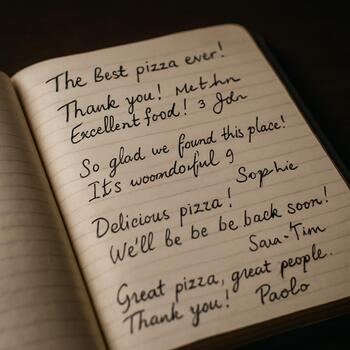 The Best pizza ever!
Thank you! Methn
Excellent food! 3 John
So glad we found this place!
It's woomdoıful 9
Sophie
Delicious pizza!
We'll be be be back soon!
Sara-Tim
Great pizza, great people.
Thank you! Paolo